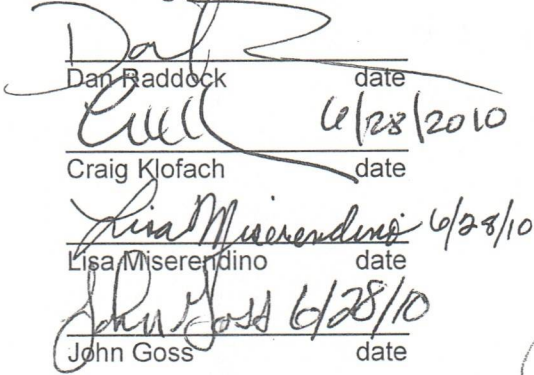 Dan Raddock date
6/28/2010
Craig Klofach date
Lisa Miserendino 6/28/10
Lisa Miserendino date
John Goss 6/28/10
John Goss date